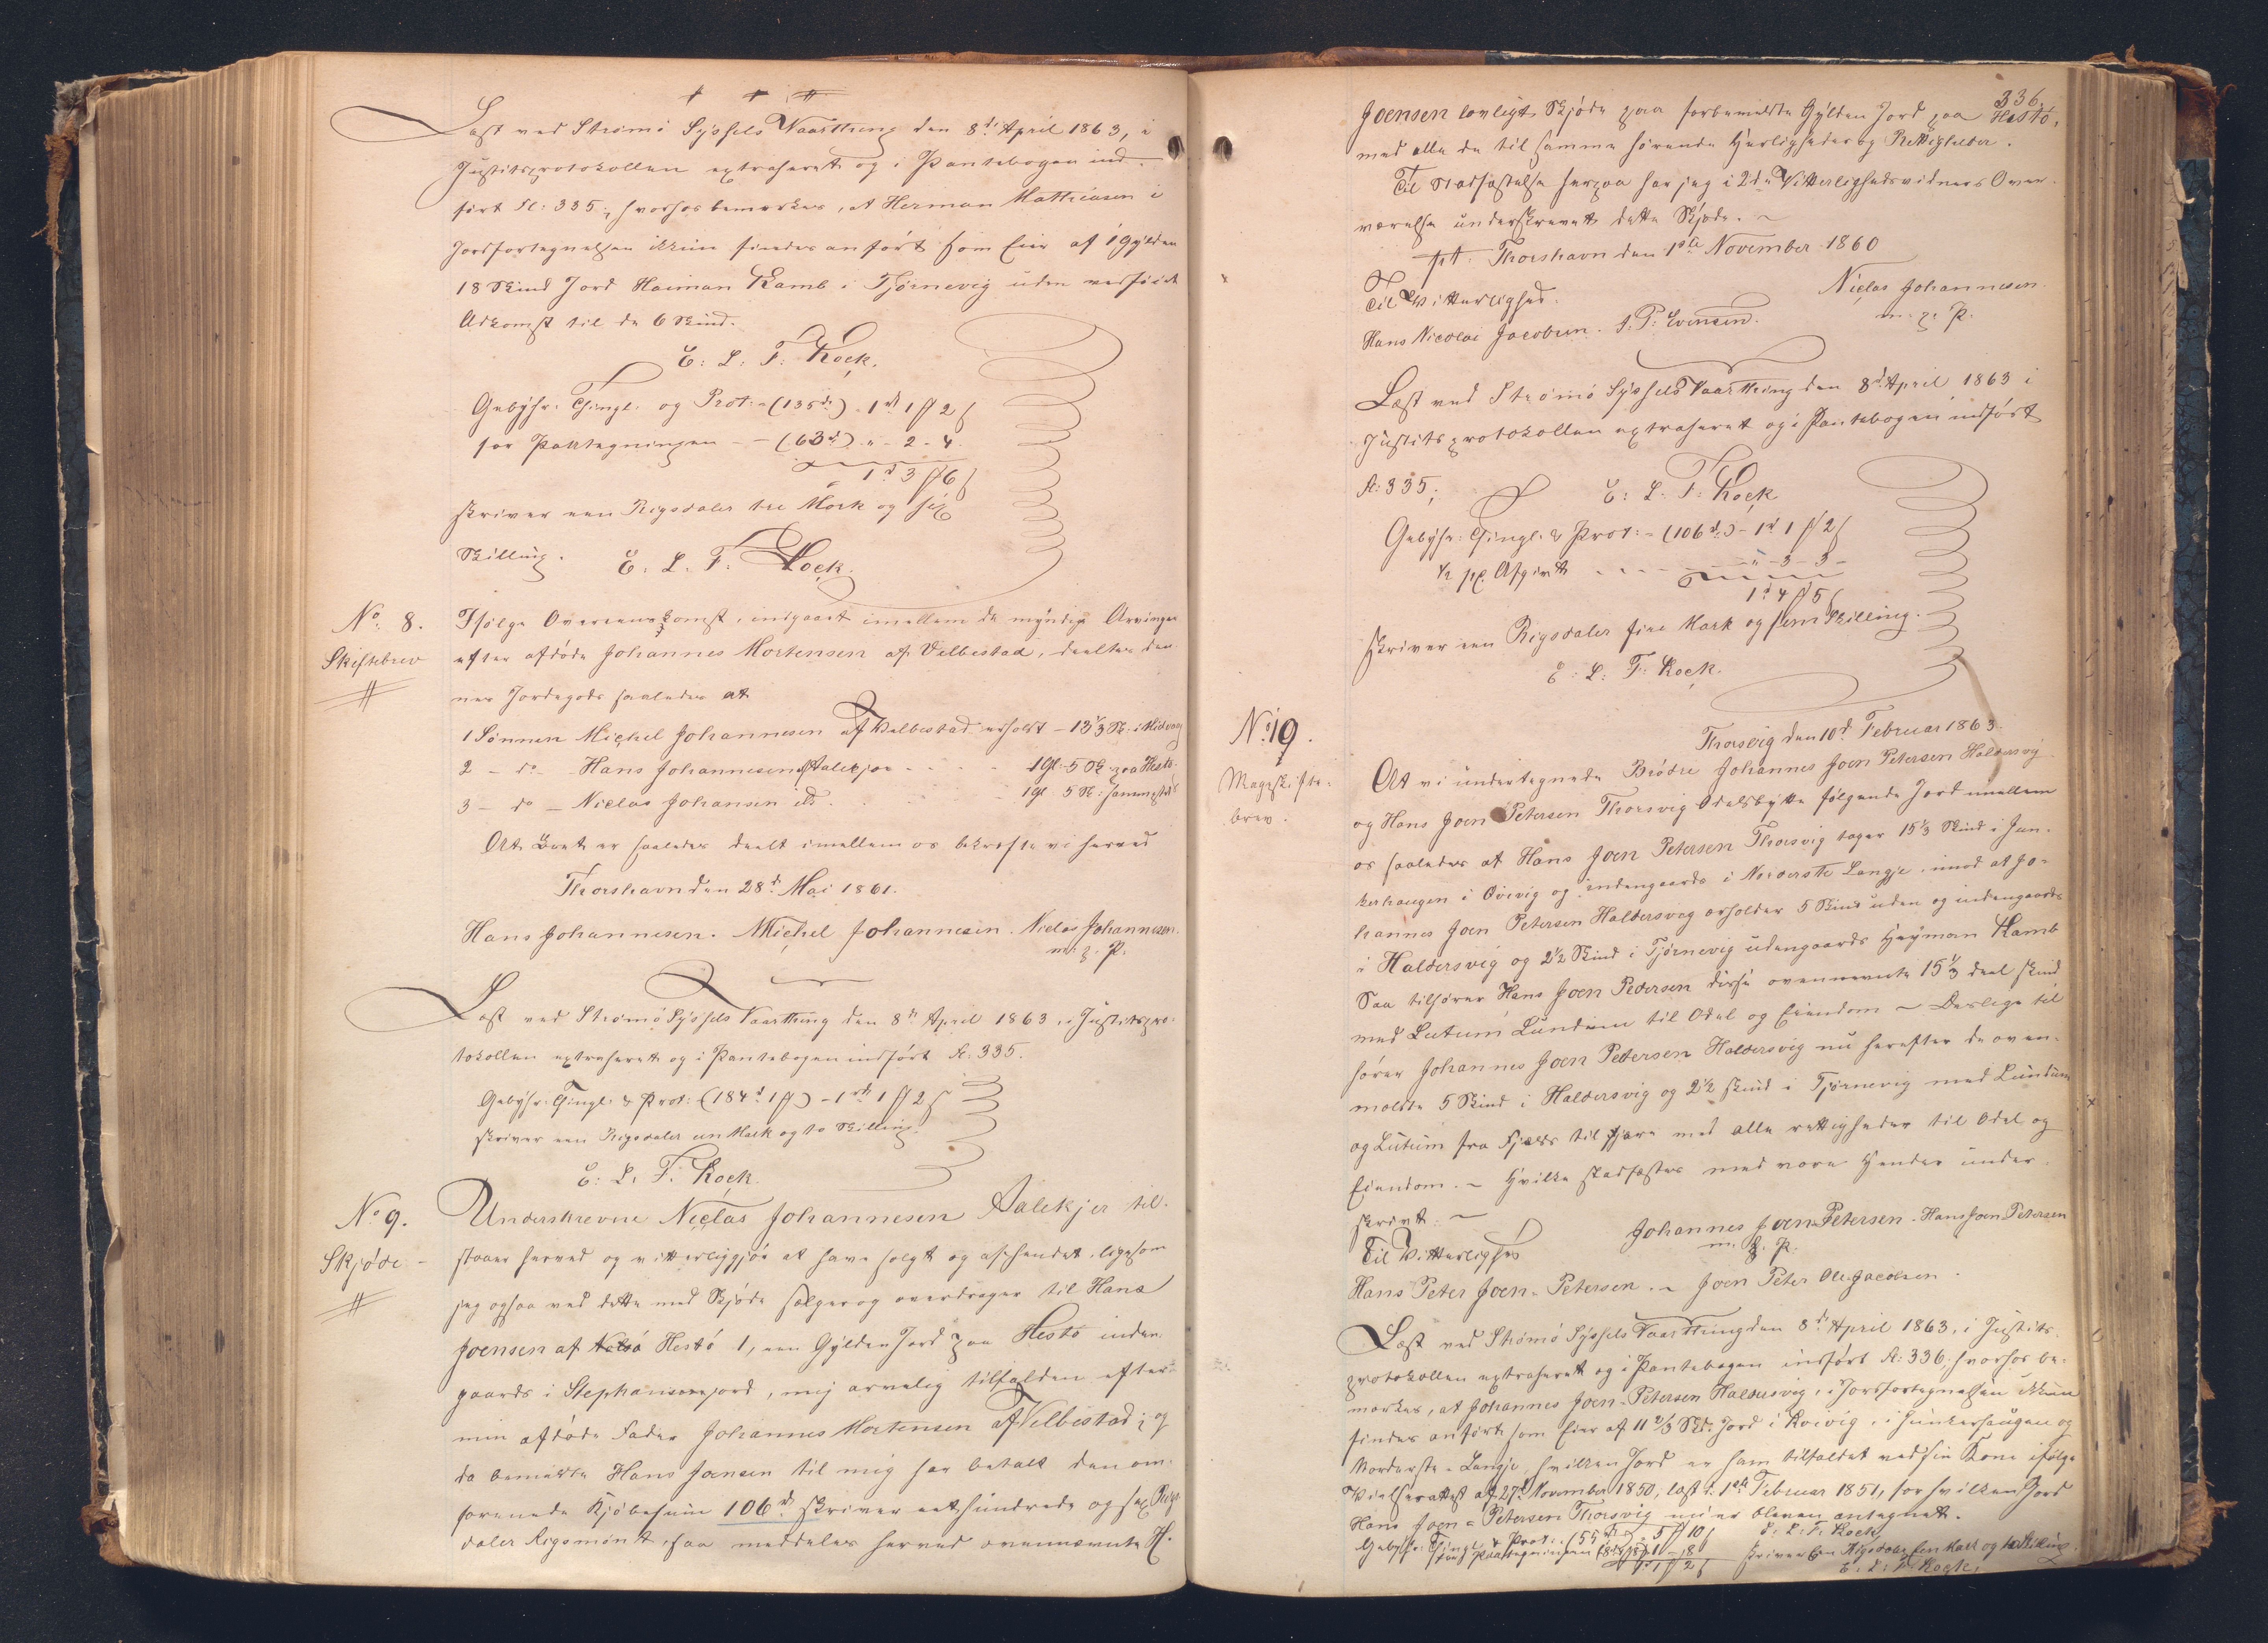 Læst ved Strømø Syssels Vaarthing den 8de April 1863, i
Justitsprotokollen extraheret og i Pantebogen ind-
ført Fl: 335; hvorhos bemærkes, at Herman Mathiasen i
Jordfortegnelsen ikkun findes anført som Eier af 1 Gylden
18 Skind Jord Haiman Kamb i Tjørnevig uden vedføiet
Adkomst til de 6 Skind.
E: L: F: Kock.
Gebyhr: Thingl. og Prot: - (135 d) - 1 rd 1 ß 2 ß
for Paategningen - - (63 d) " - 2 - 4
1 rd 3 ß 6 ß
skriver een Rigsdaler tre Mark og sex
Skilling. E. L. F. Kock.
No. 8.
Skiftebrev
Ifølge Overeenskomst, indgaaet imellem de myndige Arvinger
efter afdøde Johannes Mortensen af Velbestad, deeltes den-
nes Jordegods saaledes at
1 Sønnen Michel Johannesen af Velbestad erholdt - 13 1/3 Sk: i Midvaag
2 - do - Hans Johannesen Aalekjer - 1 Gl: 5 Sk paa Hestø
3 - do - Niclas Johansen do - 1 Gl 5 Sk: sammesteds
At Boet er saaledes deelt imellem os bekræfte vi herved
Thorshavn den 28d Mai 1861.
Hans Johannesen. Michel Johannesen. Niclas Johannesen.
m. f. P.
Læst ved Strømø Syssels Vaarthing den 8de April 1863, i Justitspro-
tokollen extraheret og i Pantebogen indført Fl: 335.
Gebyhr: Thingl. & Prot: (184 d 1 ß) - 1 rd 1 ß 2 ß
skriver een Rigsdaler en Mark og to Skilling.
E: L. F: Kock.
No 9.
Skjøde -
Underskrevne Niclas Johannesen Aalekjer til-
staaer herved og vitterliggjør at have solgt og afhændet, ligesom
jeg ogsaa ved dette mit Skjøde sælger og overdrager til Hans
Joensen af Nolsø Hestø 1, een Gylden Jord paa Hestø inden-
gaards i Stephansonsjord, mig arvelig tilfalden efter
min afdøde Fader Johannes Mortensen af Velbestad; og
da bemeldte Hans Joensen til mig har betalt den om-
forenede Kjøbesum 106 rd skriver eet hundrede og sex Rigs-
daler Rigsmønt, saa meddeles herved ovennævnte H.
336.
Joensen lovligt Skjøde paa forbemeldte Gylden Jord paa Hestø,
med alle de til samme hørende Herligheder og Rettigheder.
Til Stadfæstelse herpaa har jeg i 2de Vitterlighedsvidners Over-
værelse underskrevet dette Skjøde. ~
pt. Thorshavn den 1ste November 1860
Til Vitterlighed. Niclas Johannesen.
Hans Nicolai Jacobsen. J. P: Evensen. m. f. P.
Læst ved Strømø Syssels Vaarthing den 8d April 1863 i
Justitsprotokollen extraheret og i Pantebogen indført
Fl: 335;
E: L: F: Kock
Gebyhr: Thingl. & Prot: - (106 d) - 1 rd 1 ß 2 ß
½ pC. Afgivt - " - 3 - 3 -
1 rd 4 ß 5 ß
skriver een Rigsdaler fire Mark og fem Skilling.
E: L: F: Kock.
No: 19.
Mageskifte-
brev.
Thorsvig den 10d Februar 1863.
At vi undertegnede Brødre Johannes Joen Petersen Haldersvig
og Hans Joen Petersen Thorsvig Odelsbytte følgende Jord imellem
os saaledes at Hans Joen Petersen Thorsvig tager 15 1/3 Skind i Jun-
kerhaugen i Qvivig og indengaards i Norderste Langje, imod at Jo-
hannes Joen Petersen Haldersvig erholder 5 Skind uden og indengaards
i Haldersvig og 2½ Skind i Tjørnevig udengaards Heyman Kamb
Saa tilhører Hans Joen Petersen disse ovennævnte 15 1/3 deel skind
med Lutum Lundum til Odel og Eiendom ~ Deslige til-
hører Johannes Joen Petersen Haldersvig nu herefter de oven-
meldte 5 Skind i Haldersvig og 2½ skind i Tjørnevig med Lundum
og Lutum fra Fjeld til Fjære med alle rettigheder til Odel og
Eiendom. ~ Hvilke stadfæstes med vore Hender under
skrivt: ~
Johannes Joen Petersen. Hans Joen Petersen
m. f. P.
Til Vitterlighed
Hans Peter Joen-Petersen. ~ Joen Peter Ole Jacobsen.
Læst ved Strømø Syssels Vaarthing den 8de April 1863, i Justits-
protokollen extraheret og i Pantebogen indført Fl: 336; hvorhos be-
mærkes, at Johannes Joen-Petersen Haldersvig i Jordfortegnelsen ikkun
findes anført som Eier af 11 2/3 Skd: Jord i Kvivig, i Junkerhaugen og
Norderste-Langje, hvilken Jord er ham tilfaldet ved sin Kone ifølge
Vielsesattest af 27d November 1850, læst d. 1ste Februar 1851, for hvilken Jord
Hans Joen-Petersen Thorsvig nu er bleven antegnet.
E. L. F. Kock
Gebyhr: Thingl. & Prot: (55 rd) - 5 ß 10 ß
for Paategningen
1 rd 1 ß 2 ß
skriver Een Rigsdaler Een Mark og to Skilling.
E. L: F. Kock.